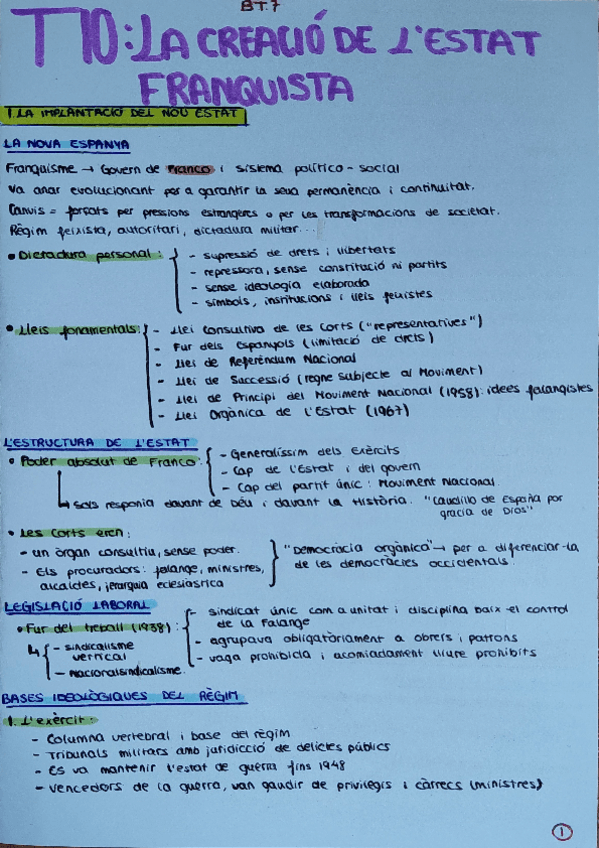 BT7
T10: LA CREACIÓ DE L'ESTAT
FRANQUISTA
1. LA IMPLANTACIÓ DEL NOU ESTAT
LA NOVA ESPANYA
Franquisme → Govern de Franco i sistema polític o - social
Va anar evolucionant per a garantir la seua permanència i continuïtat.
Canvis = forçats per pressions estrangeres o per les transformacions de societat.
Règim feixista, autoritari, dictadura militar...
• Dictadura personal:
- supressió de drets i llibertats
- repressora, sense constitució ni partits
- sense ideologia elaborada
- símbols, institucions i lleis feixistes
• Lleis fonamentals:
- Llei Consultiva de les Corts ("representatives")
- Fur dels espanyols (limitació de drets)
- Llei de Referèndum Nacional
- Llei de Successió (regne subjecte al Moviment)
- Llei de Principi del Moviment Nacional (1958): idees falangistes
- Llei Orgànica de l'Estat (1967)
L'ESTRUCTURA DE L'ESTAT
• Poder absolut de Franco:
- Generalíssim dels Exèrcits
- Cap de l'Estat i del govern
- Cap del partit únic: Moviment Nacional
↳ Sols responia davant de Déu i davant la Història. "Caudillo de España por
gracia de Dios"
• Les Corts eren:
- un òrgan consultiu, sense poder.
- Els procuradors: falange, ministres,
alcaldes, jerarquia eclesiàstica
"Democràcia orgànica" → per a diferenciar-la
de les democràcies occidentals.
LEGISLACIÓ LABORAL
• Fur del treball (1938):
↳ - sindicalisme
vertical
- Nacionalsindicalisme.
- sindicat únic com a unitat i disciplina baix el control
de la Falange
- agrupava obligatòriament a obrers i patrons
- vaga prohibida i acomiadament lliure prohibits
BASES IDEOLÒGIQUES DEL RÈGIM
1. L'exèrcit:
- Columna vertebral i base del règim
- Tribunals militars amb juridicció de delictes públics
- Es va mantenir l'estat de guerra fins 1948
- Vencedors de la guerra, van gaudir de privilegis i càrrecs (ministres)
1